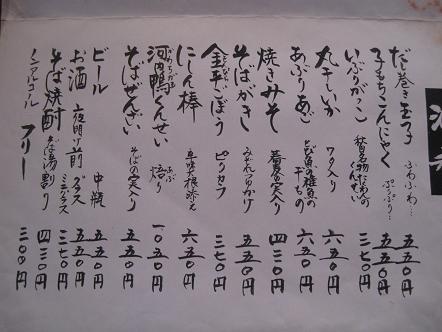 だし巻き玉子 ふわふわ… 五五〇円
子もちこんにゃく ぷりぷり… 五五〇円
いぶりがっこ 秋田名物たくあんのくんせい 三七〇円
丸干しいか ワタ入り 五五〇円
あぶりあご とび魚の稚魚の干もの 六五〇円
焼きみそ 蕎麦の実入り 四三〇円
そばがき みぞれつゆかけ 六五〇円
金平ごぼう ピリカラ 三七〇円
にしん棒 辛味大根添え 六五〇円
河内鴨くんせい 焙り 一〇五〇円
そばぜんざい そばの実入り 五五〇円
ビール 中瓶 五五〇円
お酒 夜明け前 グラス 五五〇円
ミニグラス 三七〇円
そば焼酎 そば湯割り 四三〇円
ノンアルコール フリー 三〇〇円